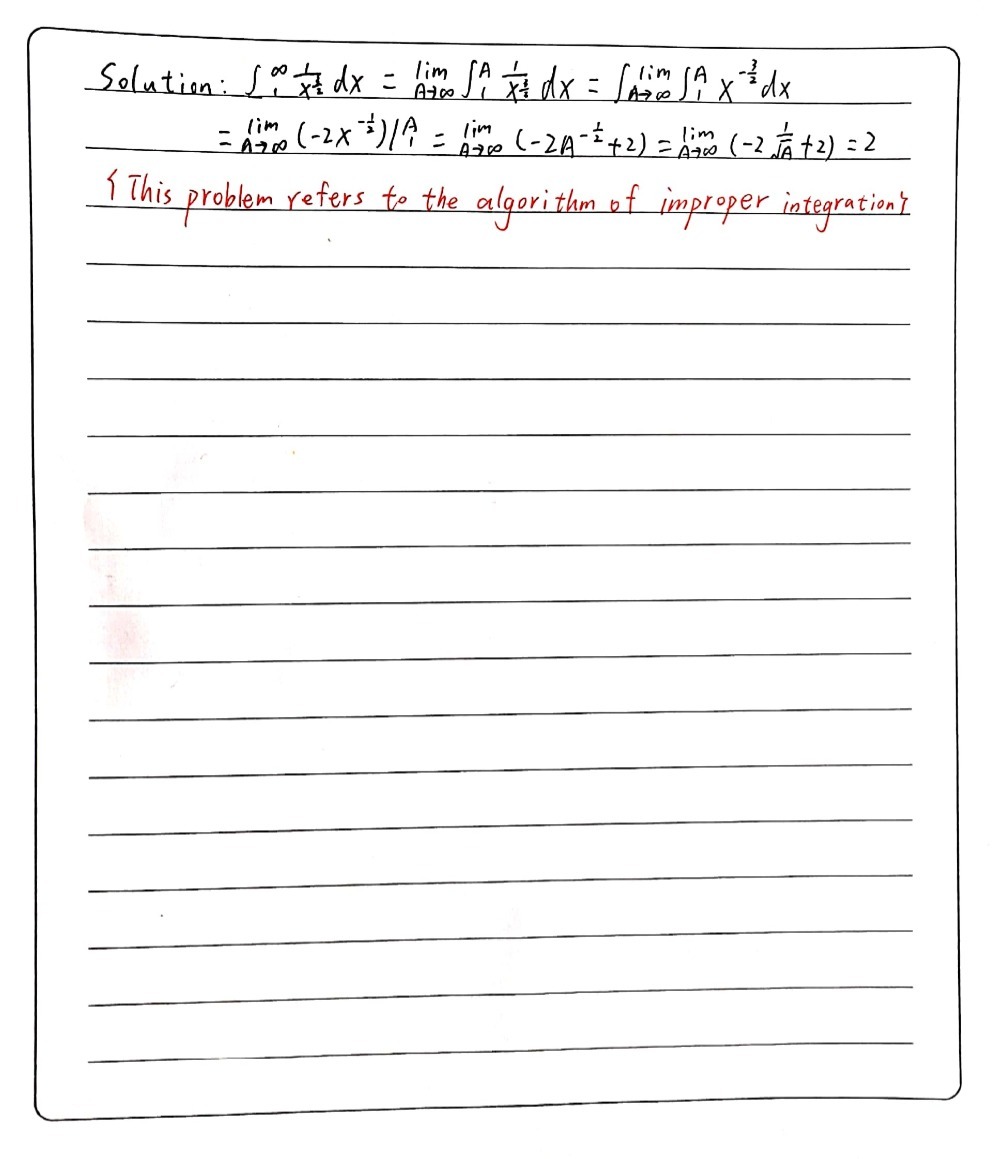 Solution: ∫₁^∞ 1/x^{3/2} dx = lim_{A→∞} ∫₁^A 1/x^{3/2} dx = ∫ lim_{A→∞} ∫₁^A x^{-3/2} dx
= lim_{A→∞} (-2x^{-1/2})|₁^A = lim_{A→∞} (-2A^{-1/2}+2) = lim_{A→∞} (-2 1/√A +2) = 2
{This problem refers to the algorithm of improper integration}